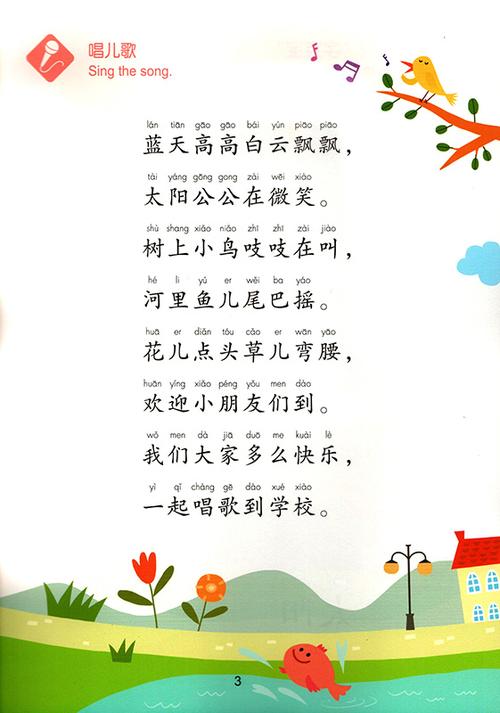 唱儿歌
Sing the song.
lán tiān gāo gāo bái yún piāo piāo
蓝天高高白云飘飘，
tài yáng gōng gong zài wēi xiào
太阳公公在微笑。
shù shang xiǎo niǎo zhī zhī zài jiào
树上小鸟吱吱在叫，
hé li yú er wěi ba yáo
河里鱼儿尾巴摇。
huā er diǎn tóu cǎo er wān yāo
花儿点头草儿弯腰，
huān yíng xiǎo péng yǒu men dào
欢迎小朋友们到。
wǒ men dà jiā duō me kuài lè
我们大家多么快乐，
yì qǐ chàng gē dào xué xiào
一起唱歌到学校。
3